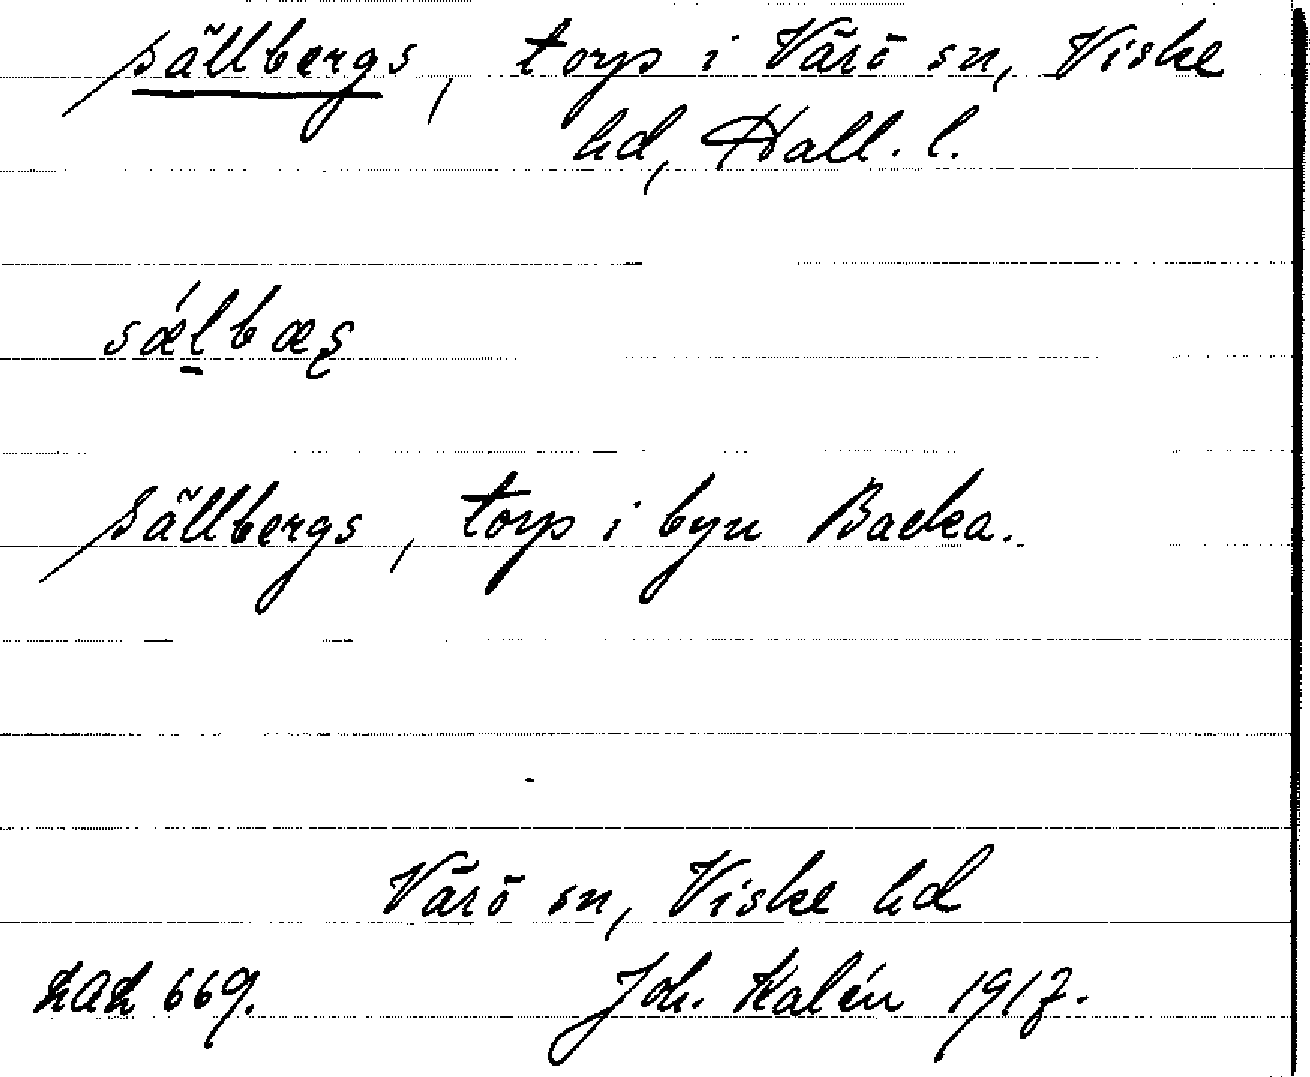 sällbergs, torp i Värö sn, Viske
hd, Hall. l.
sällbergs, torp i byn Backa.
Värö sn, Viske hd
669. Joh. Kalén 1917.